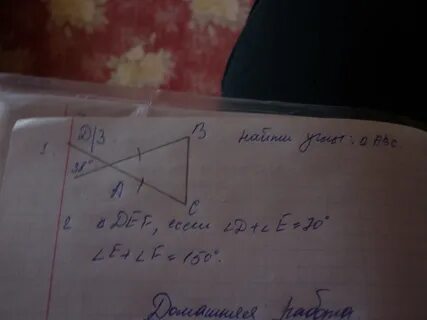 Д/З
1.
B
найти углы: △ ABC.
38°
A
C
2. △ DEF, если ∠D+∠E=70°
∠E+∠F=150°.
Домашняя работа